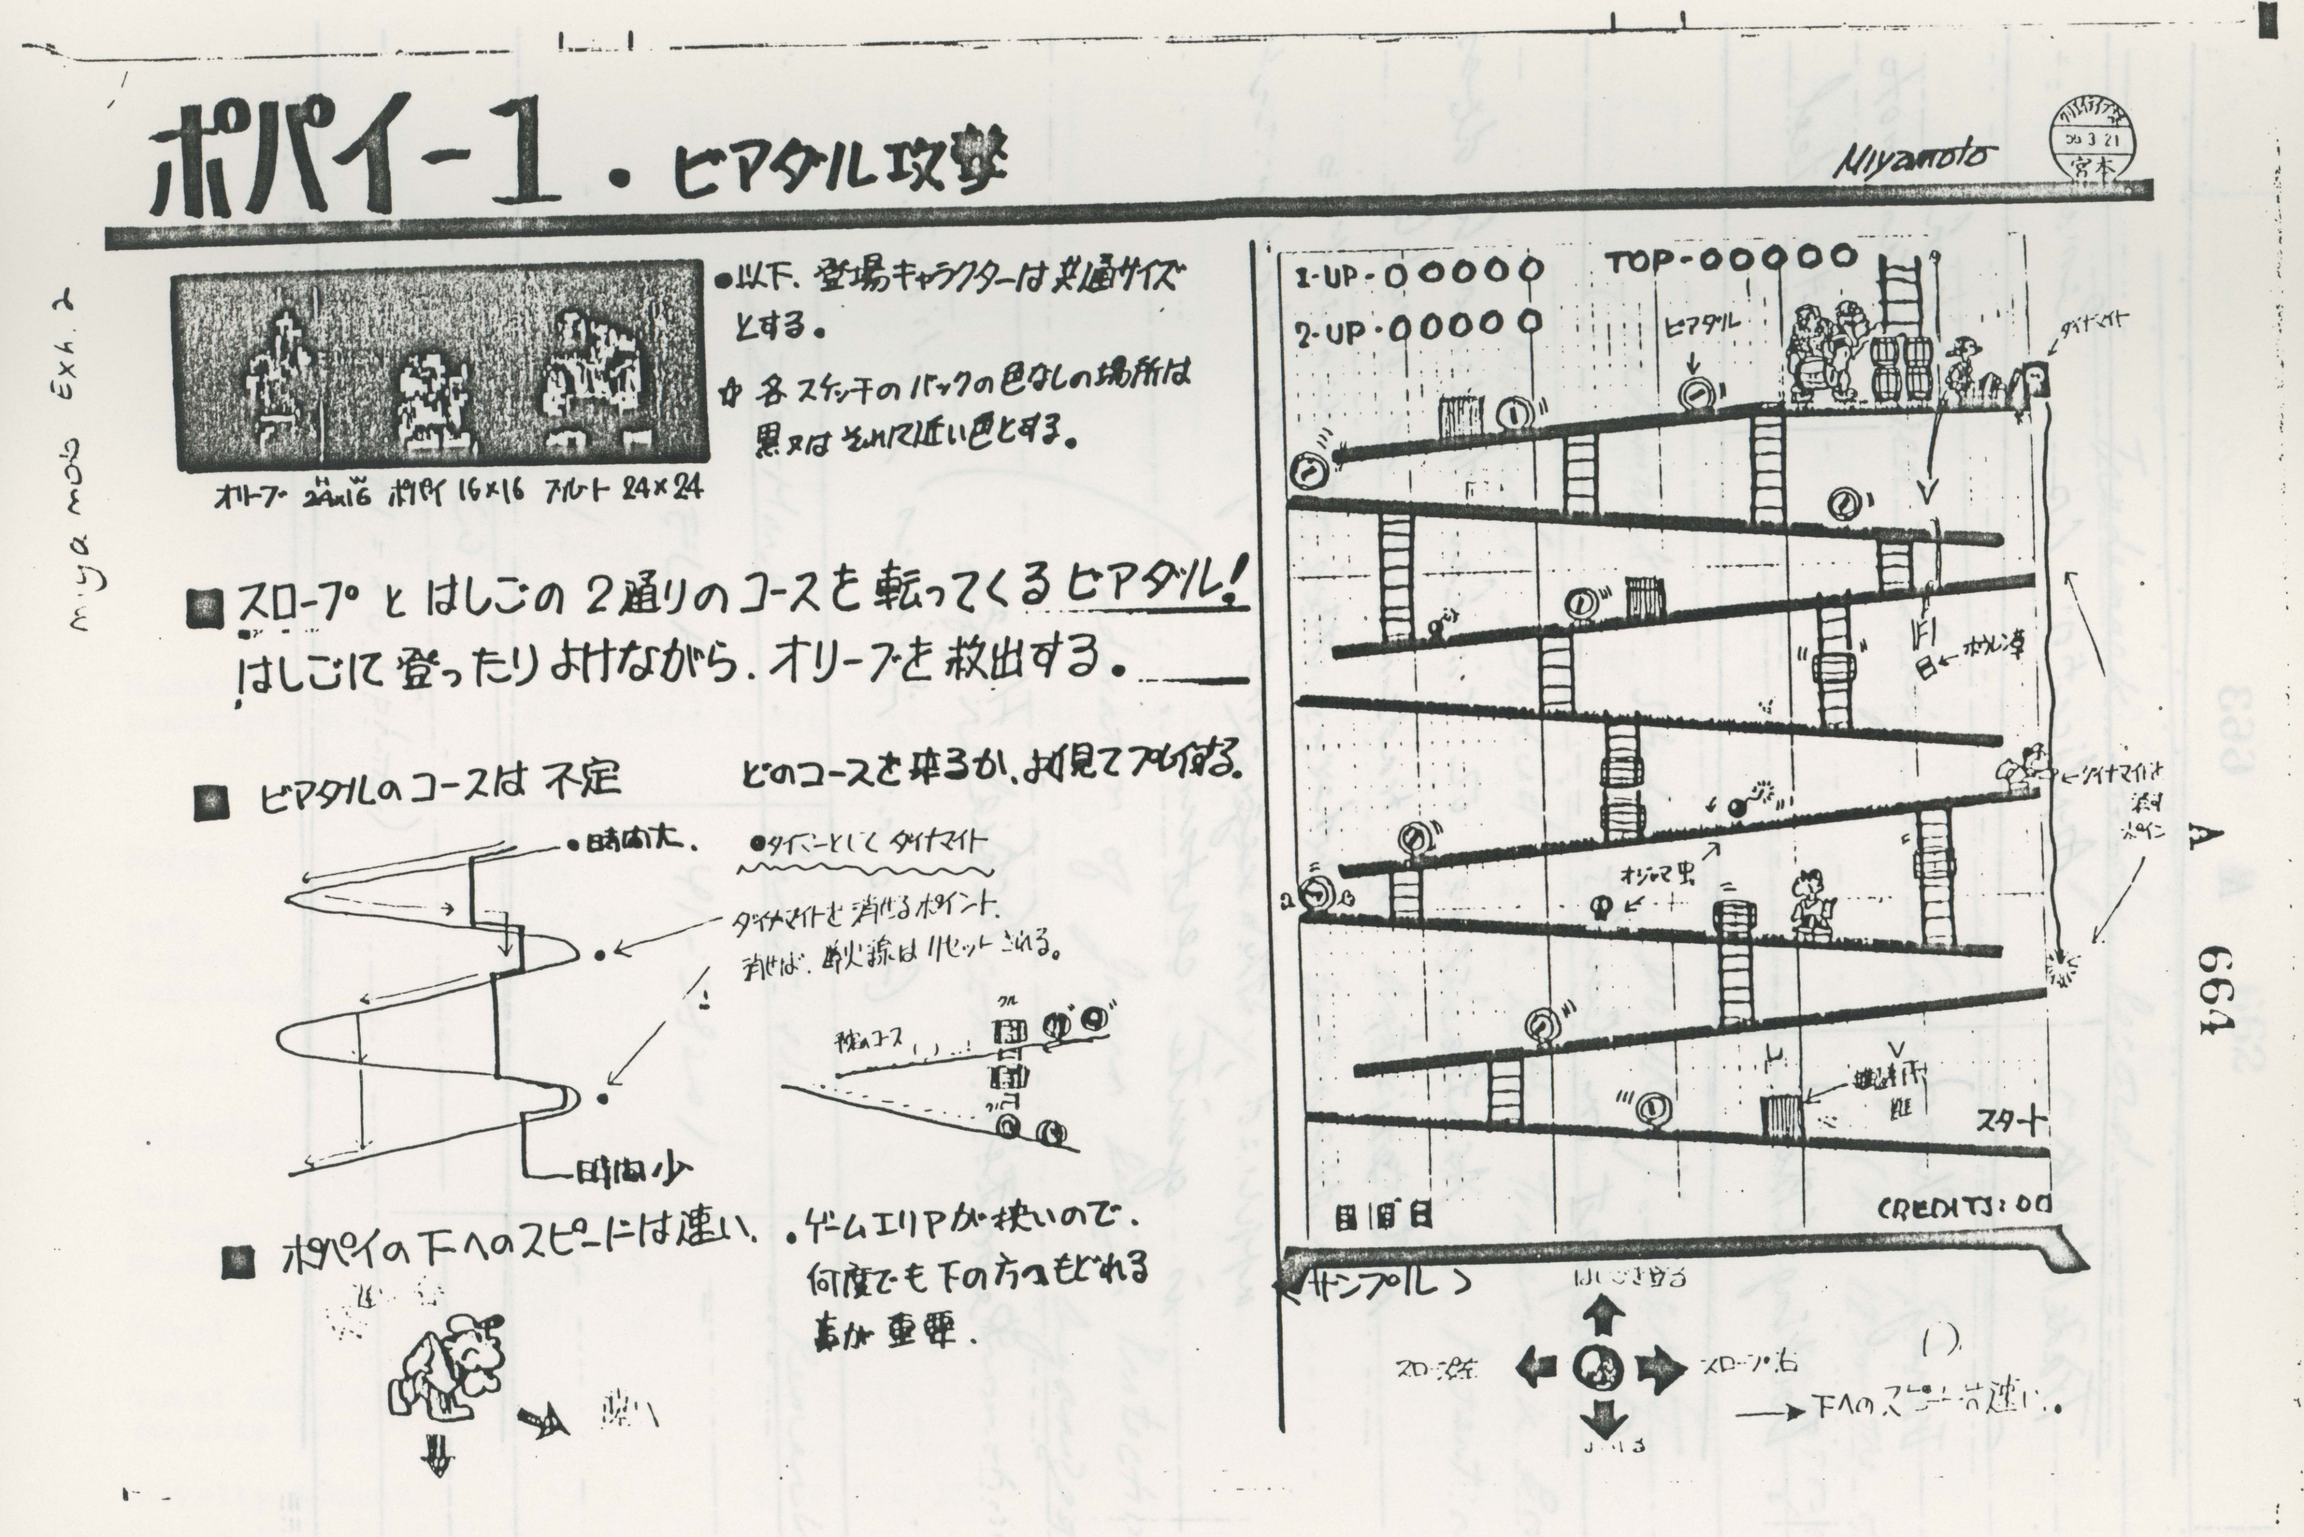 ポパイ-1・ビアダル攻撃
Miyamoto
56 3 21
宮本
miyamoto Exh. 2
●以下、登場キャラクターは共通サイズ
とする。
各スケッチのバックの色なしの場所は
黒又はそれに近い色とする。
オリーブ 24×16 ポパイ 16×16 ブルート 24×24
■スロープとはしごの2通りのコースを転ってくるビアダル!
はしごに登ったりよけながら、オリーブを救出する。
■ビアダルのコースは不定 どのコースを来るか、よく見てプレイする。
●時間大.
●タイマーとして ダイナマイト
ダイナマイトを消せるポイント.
消せば、導火線はリセットされる。
コース
時間少
■ポパイの下へのスピードは速い、
・ゲームエリアが狭いので、
何度でも下の方へもどれる
事が重要.
1-UP-00000
TOP-00000
2-UP-00000
ビアダル
ダイナマイト
ホウレン草
ダイナマイトを
消す
ポイント
オジャマ虫
スタート
CREDITS:00
<サンプル>
はしごを登る
スロープ左
スロープ右
→下へのスピードは速い.
A
664